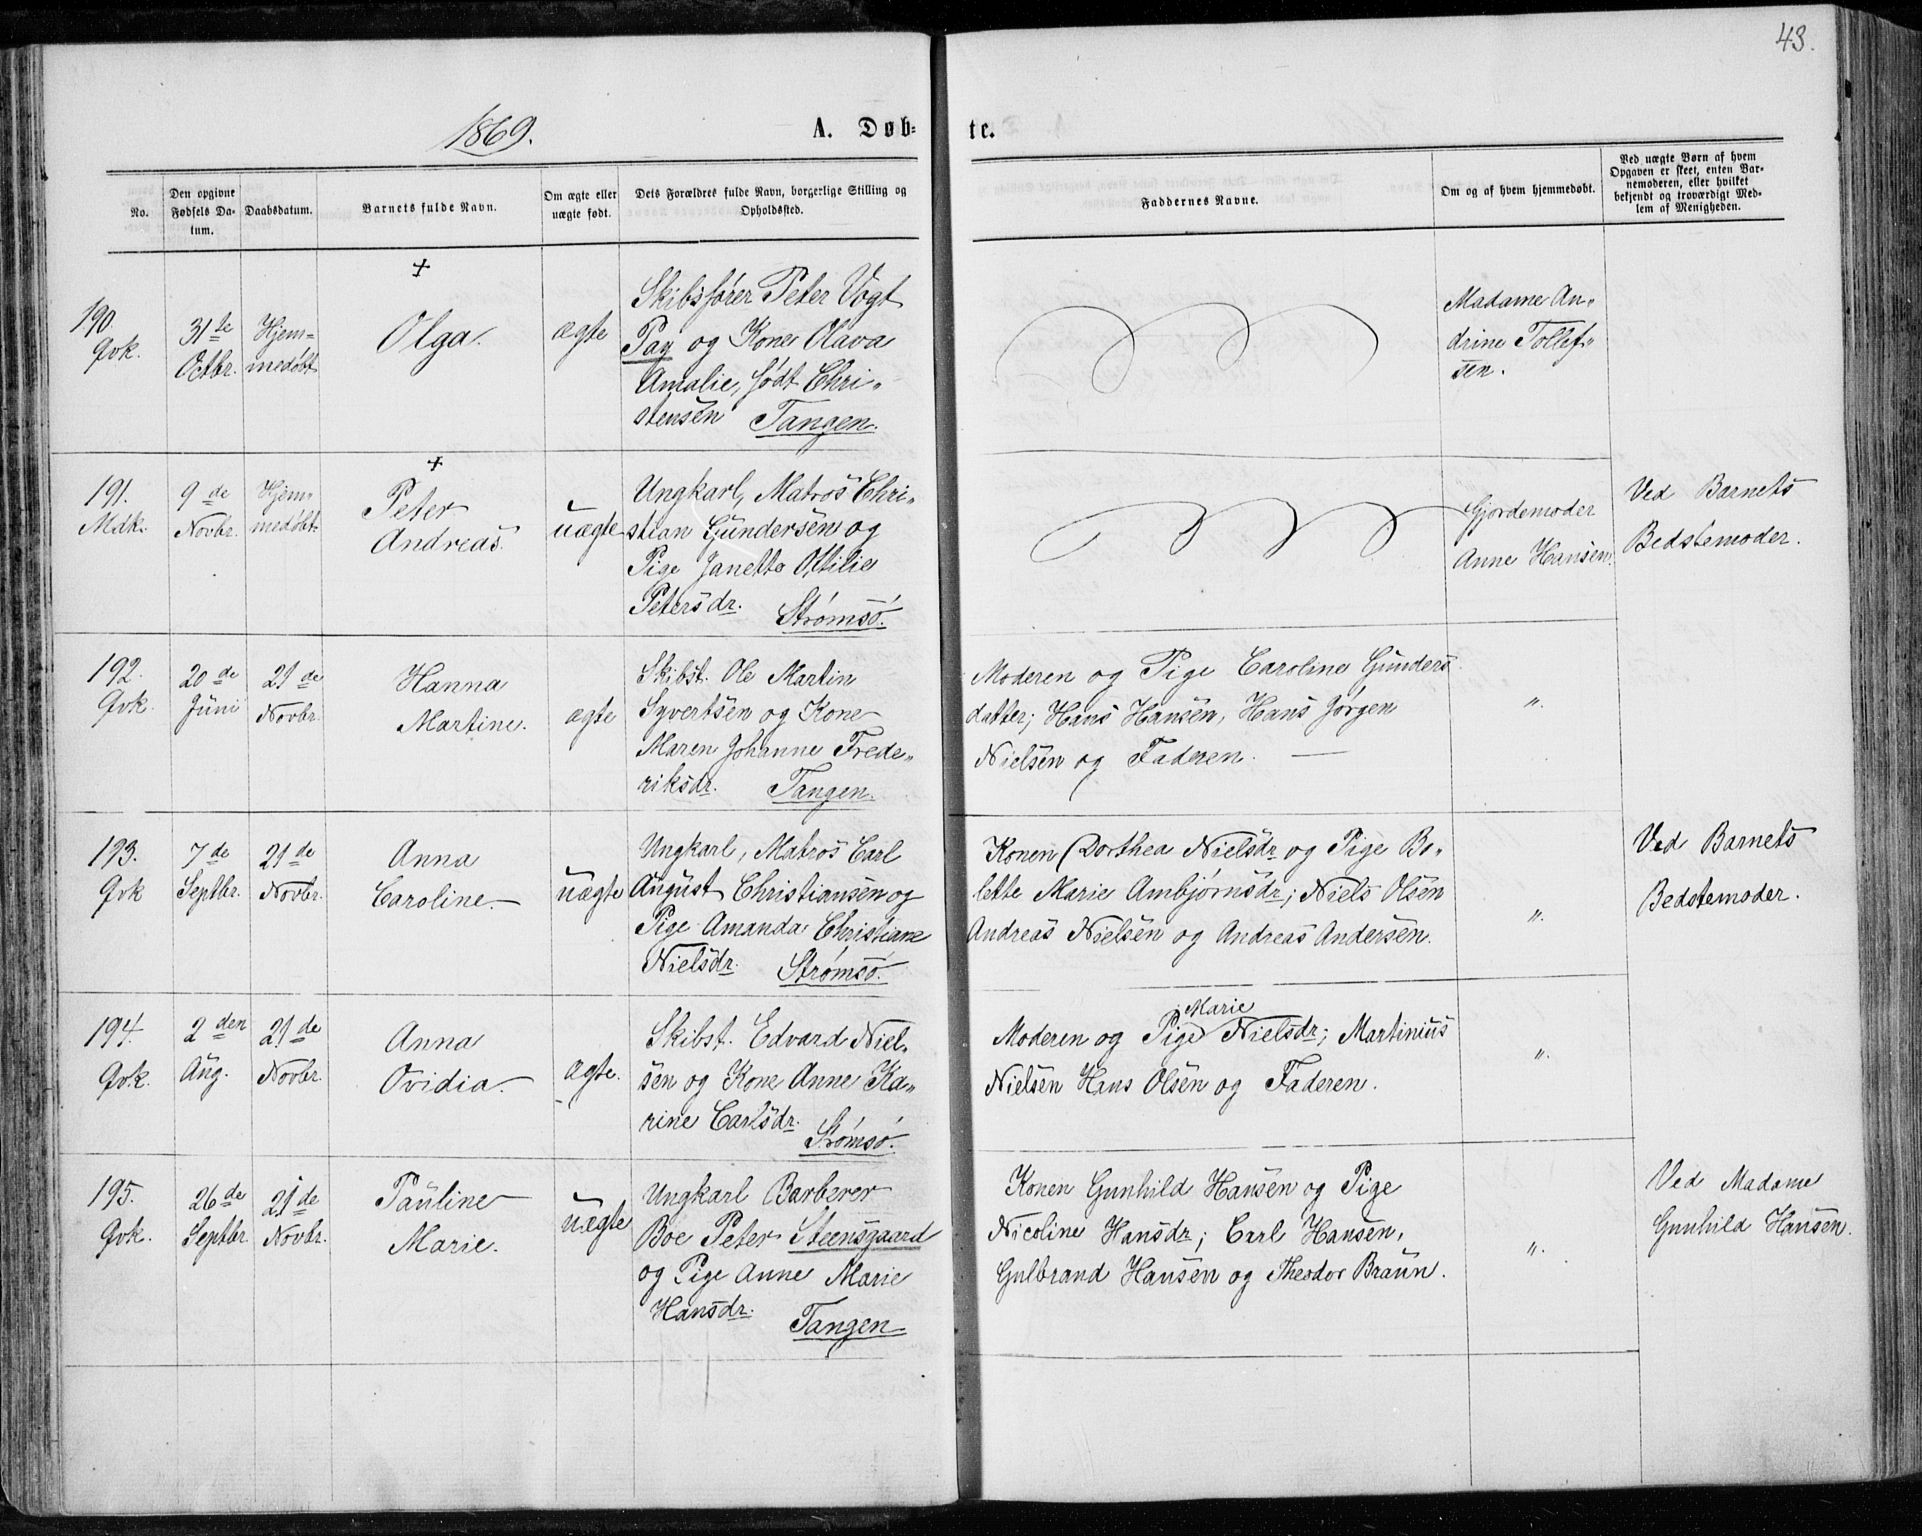 43.
1869.
A. Døb-
te.
No.
Den opgivne
Fødsels Da-
tum.
Daabsdatum.
Barnets fulde Navn.
Om ægte eller
uægte født.
Dets Forældres fulde Navn, borgerlige Stilling og
Opholdssted.
Faddernes Navne.
Om og af hvem hjemmedøbt.
Ved uægte Børn af hvem
Opgaven er skeet, enten Bar-
nemoderen, eller hvilket
bekjendt og troværdigt Med-
lem af Menigheden.
190.
Qvk.
31te
Octbr.
Hjem=
medøbt
+
Olga.
ægte
Skibsfører Peter Vogt
Pay og Kone Olava
Amalie, født Chri„
stensen Tangen.
Madame An„
drine Tollef„
sen.
191.
Mdk.
9de
Novbr.
Hjem=
medøbt.
+
Peter
Andreas.
uægte
Ungkarl, Matros Chri„
stian Gundersen og
Pige Janette Ottilie
Petersdr. Strømsø.
Gjordemoder
Anne Hansen.
Ved Barnets
Bedstemoder.
192.
Qvk.
20de
Juni
21de
Novbr.
Hanna
Martine.
ægte
Skibst. Ole Martin
Syvertsen og Kone
Maren Johanne Frede„
riksdr. Tangen.
Moderen og Pige Caroline Gunders
datter; Hans Hansen, Hans Jørgen
Nielsen og Faderen. —
„
193.
Qvk
7de
Septbr.
21de
Novbr.
Anna
Caroline.
uægte
Ungkarl, Matros Carl
August Christiansen og
Pige Amanda Christiane
Nielsdr. Strømsø.
Konen Dorthea Nielsdr og Pige Bo„
lette Marie Ambjørnsdr; Niels Olsen
Andreas Nielsen og Andreas Andersen.
„
Ved Barnets
Bedstemoder.
194.
Qvk.
2den
Aug.
21de
Novbr.
Anna
Ovidia.
ægte.
Skibst. Edvard Niel„
sen og Kone Anne Ka„
rine Carlsdr.
Strømsø.
Marie
Moderen og Pige Nielsdr; Martinius
Nielsen Hans Olsen og Faderen.
„
195.
Qvk.
26de
Septbr.
21de
Novbr.
Pauline
Marie.
uægte
Ungkarl Barberer
Boe Peter Steensgaard
og Pige Anne Marie
Hansdr.
Tangen
Konen Gunhild Hansen og Pige
Nicoline Hansdr; Carl Hansen,
Gulbrand Hansen og Theodor Braun.
„
Ved Madame
Gunhild Hansen.